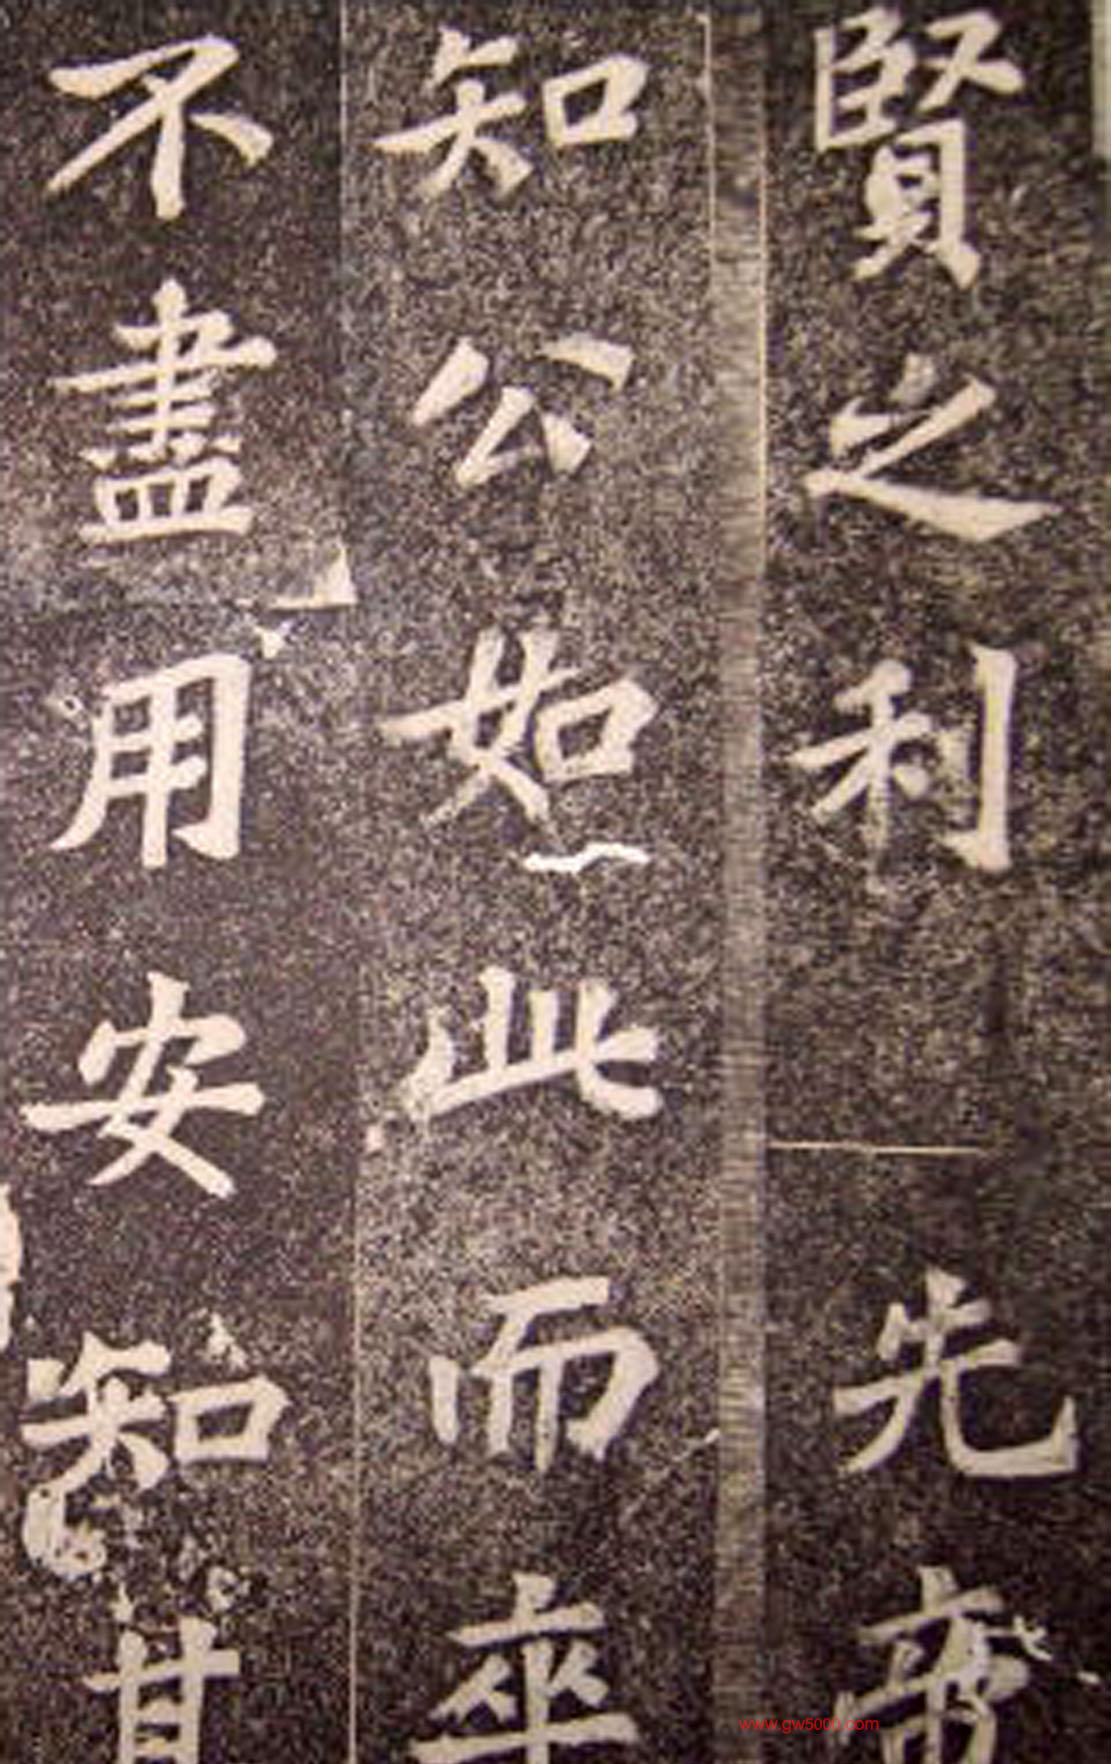 賢之利先帝
知公如此而卒
不盡用安知其
www.gw5000.com